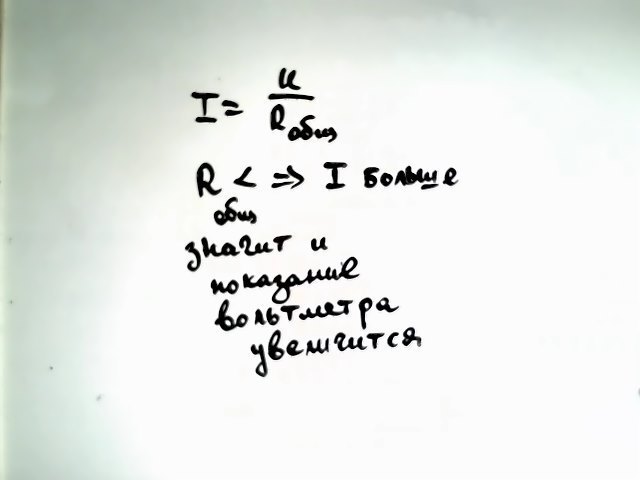 I = U / R общ
R общ < => I больше
значит и
показание
вольтметра
увеличится